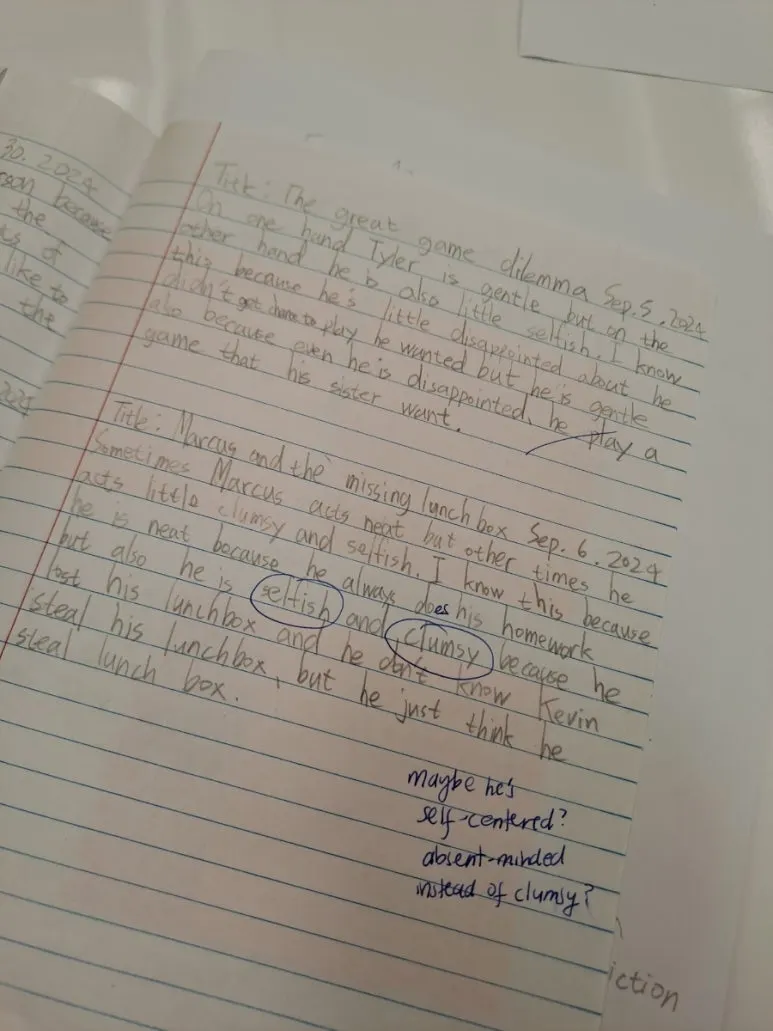 30. 2024
because
the
of
like to
the
2024
Title: The great game dilemma Sep. 5. 2024
On one hand Tyler is gentle but on the
other hand he is also little selfish. I know
this because he's little disappointed about he
didn't got chance to play he wanted but he is gentle
also because even he is disappointed, he play a
game that his sister want.
Title: Marcus and the missing lunch box Sep. 6. 2024
Sometimes Marcus acts neat but other times he
acts little clumsy and selfish. I know this because
he is neat because he always does his homework
but also he is selfish and clumsy because he
lost his lunchbox and he don't know Kevin
steal his lunchbox, but he just think he
steal lunch box.
maybe he's
self-centered?
absent-minded
instead of clumsy?
iction